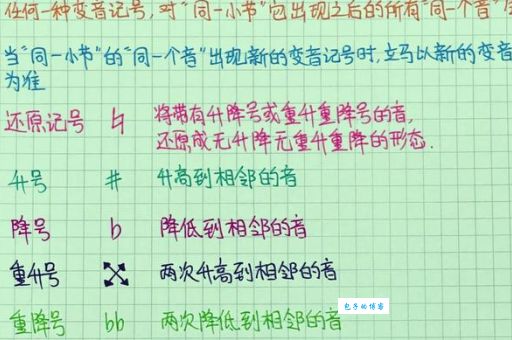 任何一种变音记号,对"同一小节"它出现之后的所有"同一个音"
当"同一小节"的"同一个音"出现新的变音记号时,立马以新的变音
为准
还原记号 ♮ 将带有升降号或重升重降号的音,
还原成无升降无重升重降的形态.
升号 # 升高到相邻的音
降号 b 降低到相邻的音
重升号 两次升高到相邻的音
重降号 bb 两次降低到相邻的音
包子的博客